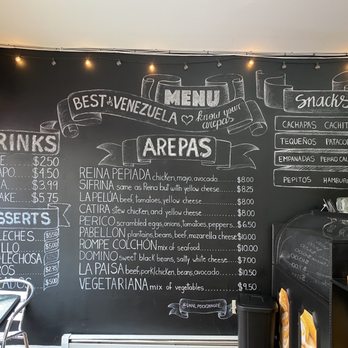 MENU
BEST of VENEZUELA
know your arepas
AREPAS
REINA PEPIADA chicken, mayo, avocado $8.00
SIFRINA same as Reina but with yellow cheese $8.25
LA PELÚA beef, tomatoes, yellow cheese $8.00
CATIRA stew chicken, and yellow cheese $8.00
PERICO scrambled eggs, onions, tomatoes, peppers $6.50
PABELLON plantains, beans, beef, mozzarella cheese $10.00
ROMPE COLCHÓN mix of seafood $10.00
DOMINÓ sweet black beans, salty white cheese $7.00
LA PAISA beef, pork, chicken, beans, avocado $10.50
VEGETARIANA mix of vegetables $9.50
RINKS
$2.50
$4.50
$3.99
AKE $5.75
SSERTS
LECHES
ILLO
LECHOSA
ROS
Snacks
CACHAPAS CACHIT
TEQUEÑOS PATACO
EMPANADAS PERRO CAL
PEPITOS HAMBUR